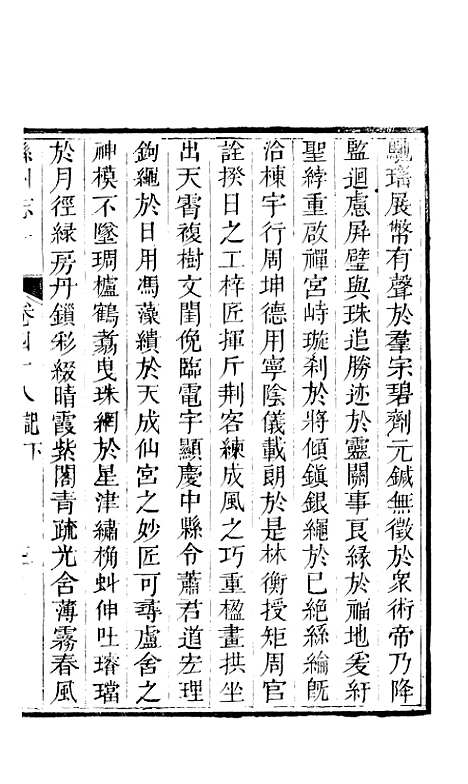 璠展幣有聲於羣宗碧劑元鍼無徵於衆術帝乃降
監迴慮屏璧與珠追勝迹於靈關事良緣於福地爰紆
聖綍重啟禪宮峙璇刹於將傾鎮銀繩於已絕絲綸旣
洽棟宇行周坤德用寧陰儀載朗於是林衡授矩周官
詮揆日之工梓匠揮斤荆客練成風之巧重楹畫拱坐
出天霄複樹文閨俛臨電宇顯慶中縣令蕭君道宏理
鉤繩於日用馮藻繢於天成仙宮之妙匠可尋盧舍之
神模不墜琱櫨鶴翥曳珠網於星津繡桷虬伸吐璿璫
於月徑緑房丹鎖彩綴晴霞紫閣青疏光含薄霧春風
卷四十八記下